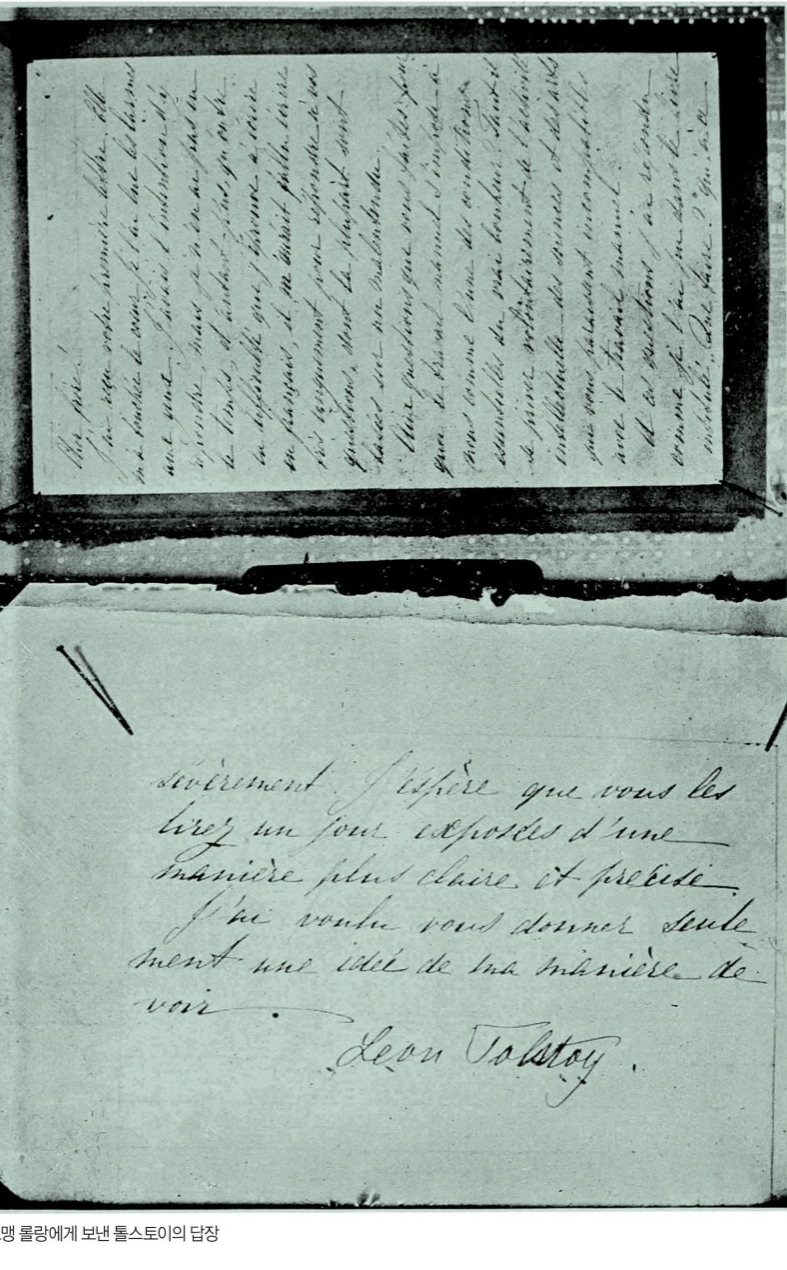 Cher frère!
J'ai reçu votre première lettre. Elle
m'a touchée le cœur. Je l'ai lue les larmes
aux yeux. J'avais l'intention d'y
répondre, mais je n'en ai pas eu
le temps, d'autant plus, qu'outre
la difficulté que j'éprouve à écrire
en français, il m'aurait fallu écrire
très longuement pour répondre à vos
questions, dont la plupart sont
basées sur un malentendu.
Aux questions que vous faites: pour
quoi le travail manuel s'impose à
nous comme l'une des conditions
essentielles du vrai bonheur? Faut-il
se priver volontairement de l'activité
intellectuelle des sciences et des arts
qui vous paraissent incompatibles
avec le travail manuel.
A ces questions j'ai répondu
comme je l'ai pu dans le livre
intitulé „Que faire? qui, à ce
sévèrement. J'espère que vous les
lirez un jour exposées d'une
manière plus claire et précise.
J'ai voulu vous donner seule
ment une idée de ma manière de
voir.
Leon Tolstoy.
맹 롤랑에게 보낸 톨스토이의 답장